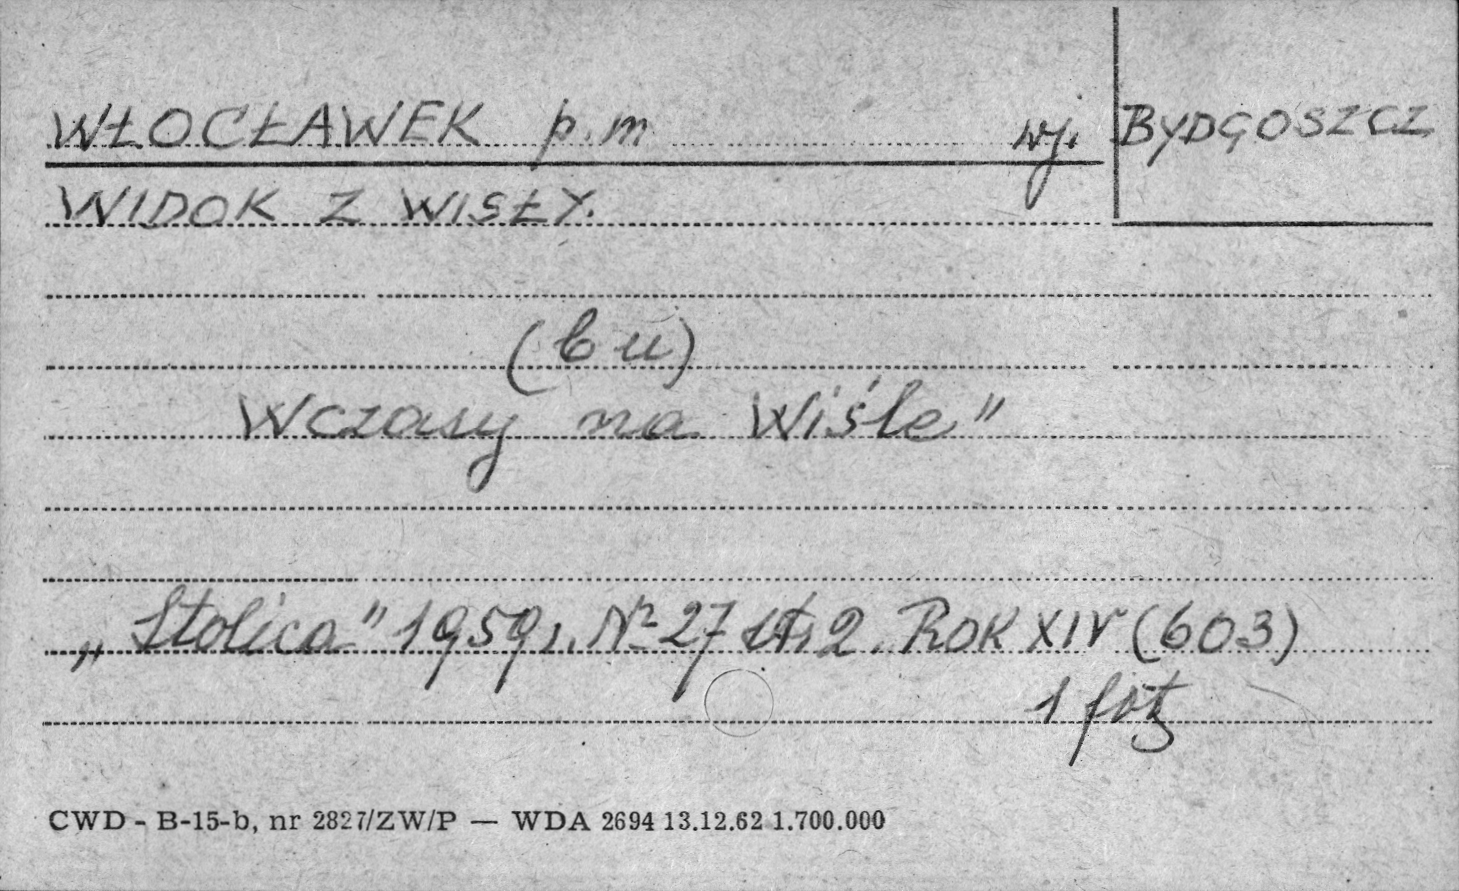 WŁOCŁAWEK p.m wj. BYDGOSZCZ
WIDOK Z WISŁY.
(b u)
Wczasy na Wiśle"
„Stolica" 1959r. Nr 27 str. 2. ROK XIV (603)
1 fot
CWD - B-15-b, nr 2827/ZW/P — WDA 2694 13.12.62 1.700.000